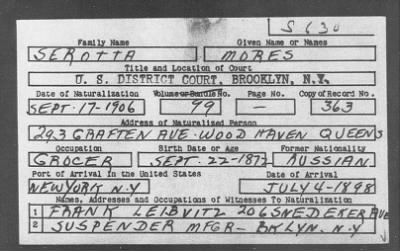 S 630
Family Name Given Name or Names
SEROTTA MORES
Title and Location of Court
U. S. DISTRICT COURT, BROOKLYN, N.Y.
Date of Naturalization Volume or Bundle No. Page No. Copy of Record No.
SEPT-17-1906 99 — 363
Address of Naturalized Person
293 GRAFTEN AVE-WOOD HAVEN QUEENS
Occupation Birth Date or Age Former Nationality
GROCER SEPT-22-1872 RUSSIAN
Port of Arrival in the United States Date of Arrival
NEW YORK N.Y JULY 4-1898
Names, Addresses and Occupations of Witnesses To Naturalization
1 FRANK LEIBVITZ 206 SNEDEKER AVE
2 SUSPENDER MFGR- BKLYN. N.Y